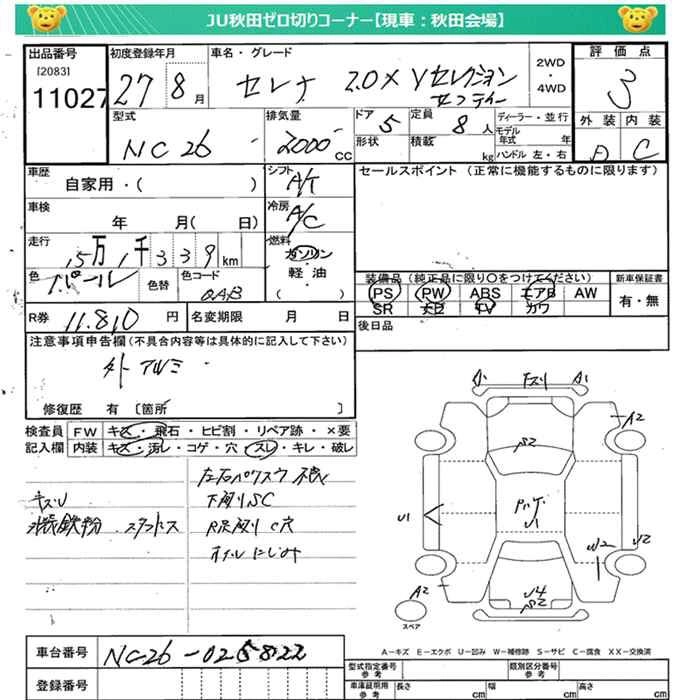 JU秋田ゼロ切りコーナー【現車：秋田会場】
出品番号 初度登録年月 車名・グレード 2WD・4WD 評価点
[2083]
11027 27 8月 セレナ 2.0X Vセレクション 3
セーフティー
型式 排気量 ドア 定員 ディーラー・並行 外装 内装
NC26 2000 cc 5 8人 モデル年式 年
形状 積載 kg ハンドル 左・右 C
車歴 シフト セールスポイント（正常に機能するものに限ります）
自家用・（ ） A/T
車検 冷房
年 月（ 日） A/C
走行 燃料
5万1千339km ガソリン
色 色替 色コード 軽油 装備品（純品に限り○をつけてください） 新車保証書
パール QAB （ ） PS PW ABS エアB AW 有・無
SR ナビ TV カワ
R券 11.810円 名変期限 月 日 後日品
注意事項申告欄（不具合内容等は具体的に記入して下さい）
外アルミ
修復歴 有 〔箇所 〕
検査員 FW キズ・飛石・ヒビ割・リペア跡・×要
記入欄 内装 キズ・汚レ・コゲ・穴・スレ・キレ・破レ
キズU 下廻りSC
鉄粉
オイルにじみ
A1 A1
A2
S2
U1 U1 W2 U2
A2 U4
S2
スペア
A－キズ E－エクボ U－凹み W－補修跡 S－サビ C－腐食 XX－交換済
車台番号 NC26-025822
登録番号
型式指定番号 参考 類別区分番号 参考
車庫証明用 参考 長さ cm 幅 cm 高さ cm